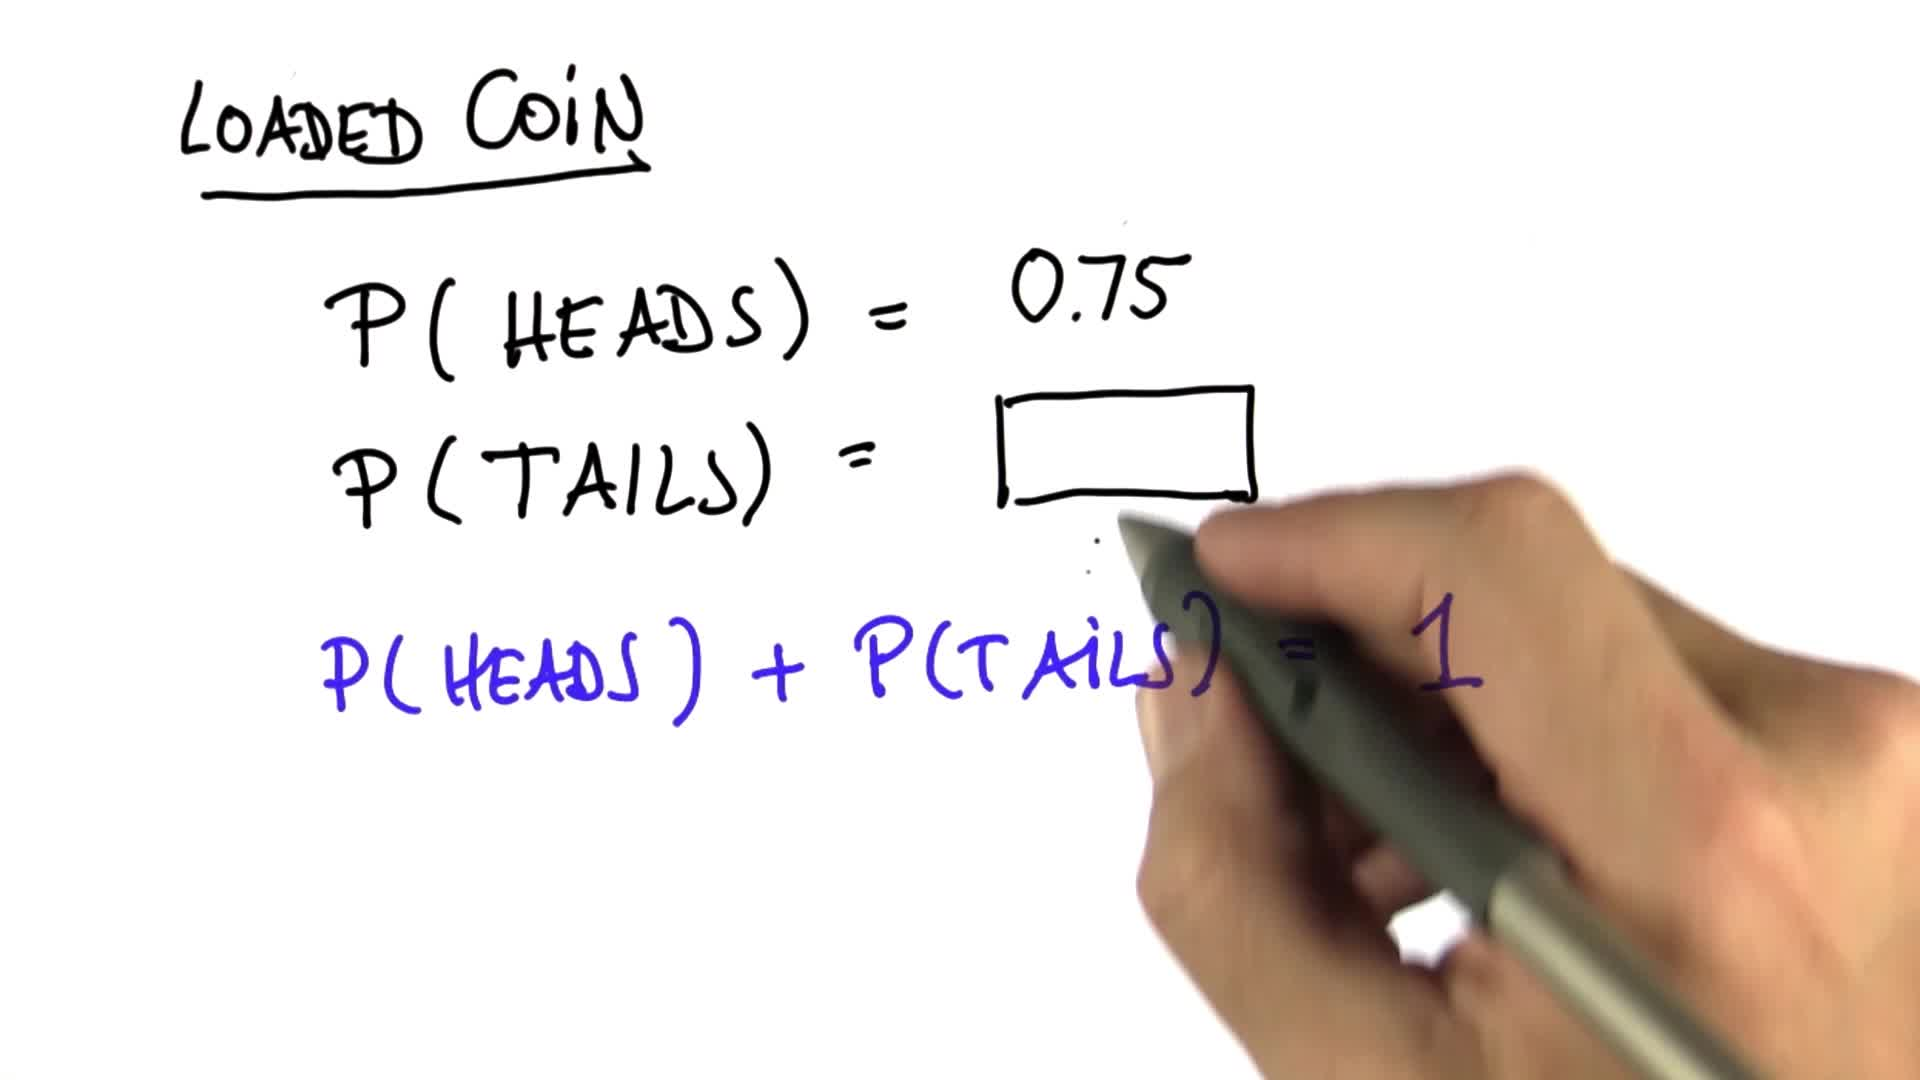 LOADED COIN
P(HEADS) = 0.75
P(TAILS) =
P(HEADS) + P(TAILS) = 1